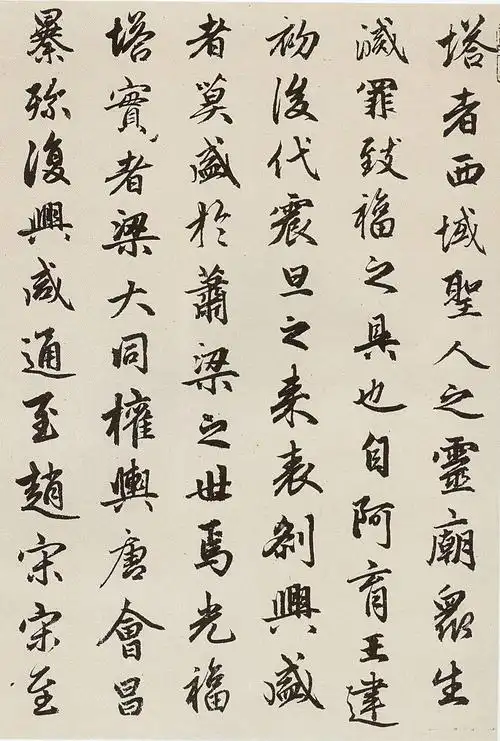 塔者西域聖人之靈廟衆生
滅罪致福之具也自阿育王建
初後代震旦之来表剎興盛
者莫盛於蕭梁之世焉光福
塔實者梁大同權輿唐會昌
暴殄復興咸通至趙宋宋至